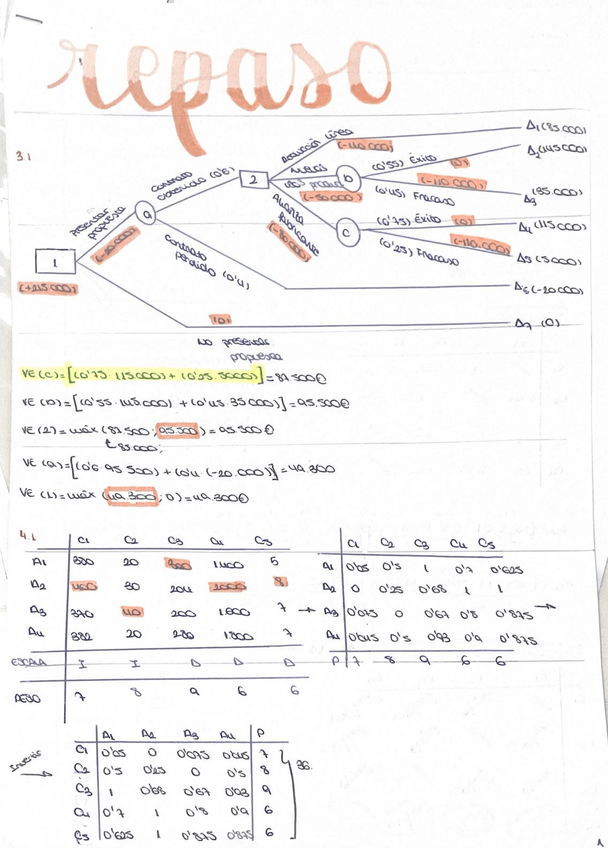 repaso
3.1
1
(+215.000)
Presentar propuesta
(-20.000)
a
Contrato obtenido (0'6)
Contrato perdido (0'4)
2
(-110.000)
(-50.000)
Alianza fabricante
(-80.000)
b
(0'55) Éxito (0)
(0'45) Fracaso (-110.000)
c
(0'75) Éxito (0)
(0'25) Fracaso (-110.000)
Δ1 (85.000)
Δ2 (145.000)
Δ3 (35.000)
Δ4 (115.000)
Δ5 (5.000)
Δ6 (-20.000)
Δ7 (0)
(0)
No presentar propuesta
VE (C) = [(0'75 · 115000) + (0'25 · 5000)] = 87.500€
VE (b) = [(0'55 · 145.000) + (0'45 · 35.000)] = 95.500€
VE (2) = máx (87.500; 95.500) = 95.500€
85.000;
VE (a) = [(0'6 · 95.500) + (0'4 · (-20.000)] = 49.300
VE (1) = máx (49.300; 0) = 49.300€
4.1
C1 C2 C3 C4 C5
A1 380 20 300 1400 5
A2 400 30 204 2000 8
A3 370 40 200 1600 7
A4 382 20 280 1800 7
ESCALA I I D D D
PESO 7 8 9 6 6
C1 C2 C3 C4 C5
A1 0'05 0'5 1 0'7 0'625
A2 0 0'25 0'68 1 1
A3 0'075 0 0'67 0'8 0'875
A4 0'045 0'5 0'93 0'9 0'875
P 7 8 9 6 6
Invertir
A1 A2 A3 A4 P
C1 0'05 0 0'075 0'045 7
C2 0'5 0'25 0 0'5 8
C3 1 0'68 0'67 0'93 9
C4 0'7 1 0'8 0'9 6
C5 0'625 1 0'875 0'875 6
36.
1